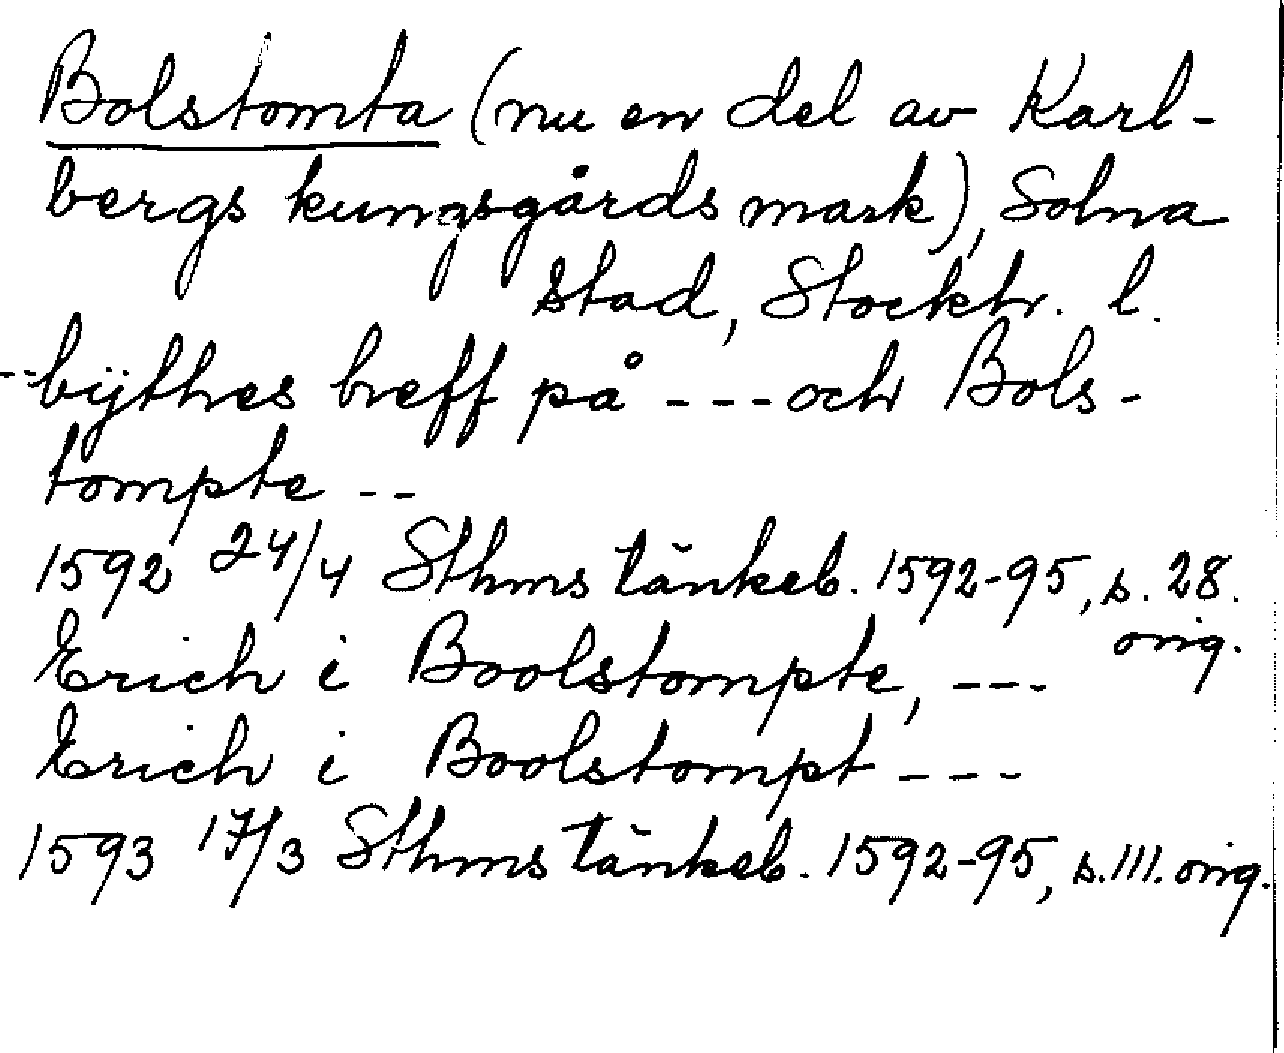 Bolstomta (nu en del av Karl-
bergs kungsgårds mark), Solna
stad, Stockh. l.
--bÿthes breff på --- och Bols-
tompte --
1592 24/4 Sthms tänkeb. 1592-95, s. 28.
orig.
Erich i Boolstompte, ---
Erich i Boolstompt ---
1593 17/3 Sthms tänkeb. 1592-95, s. 111. orig.